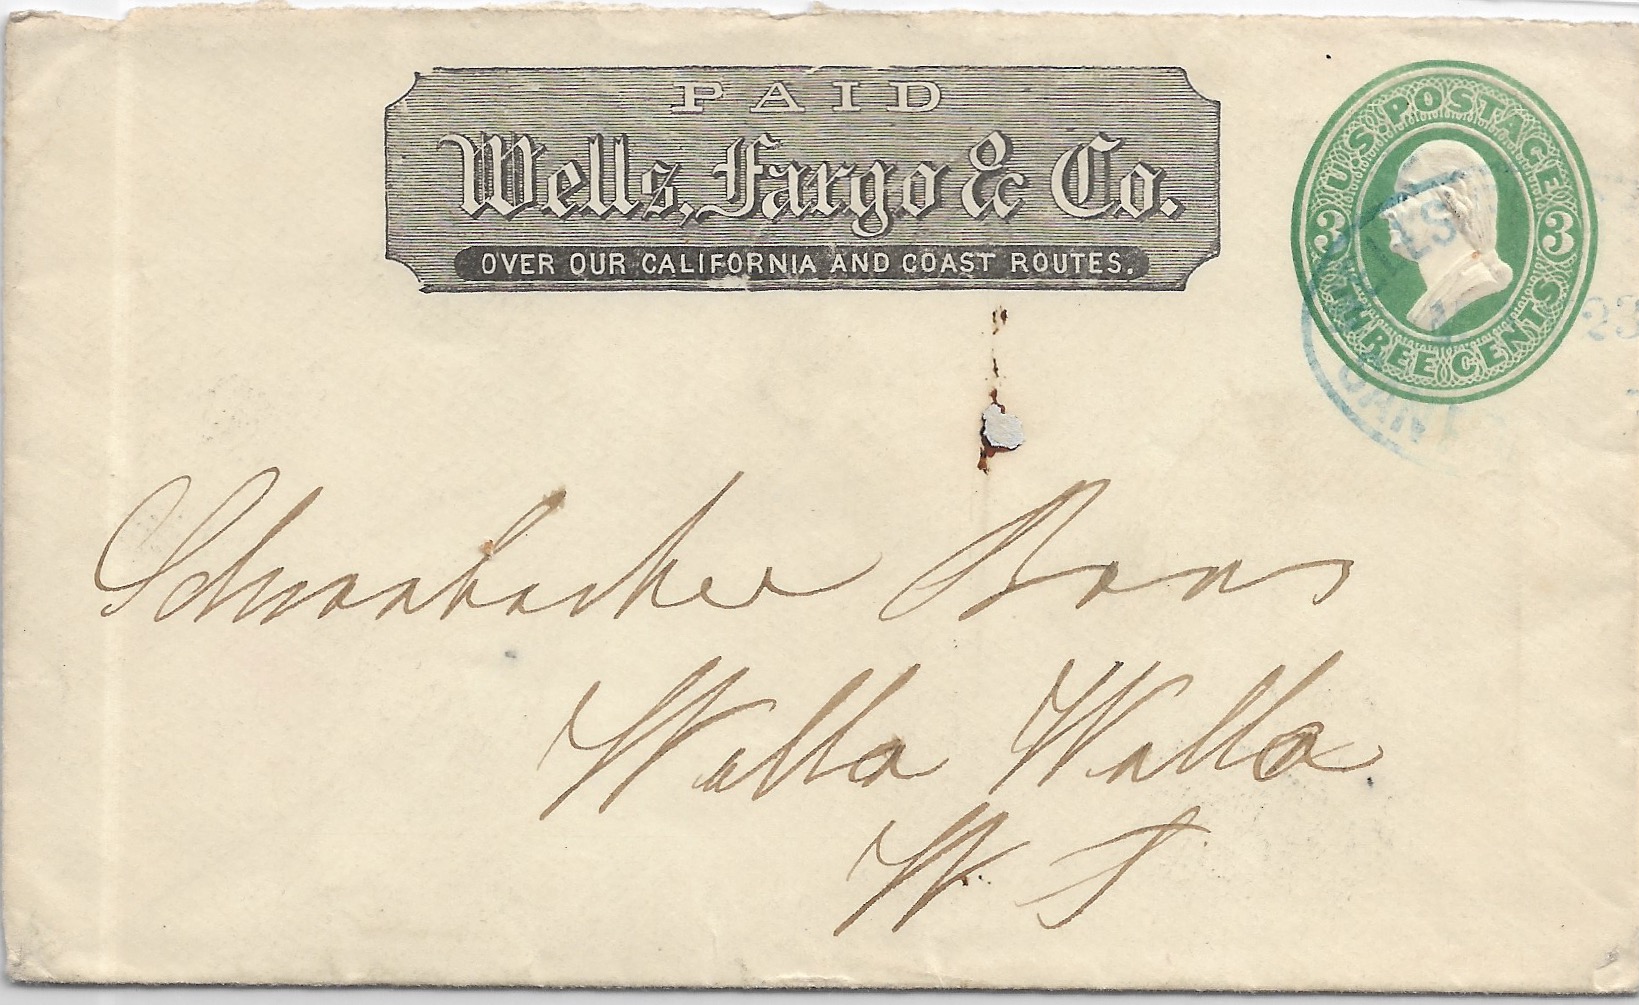 PAID
Wells, Fargo & Co.
OVER OUR CALIFORNIA AND COAST ROUTES.
U.S. POSTAGE
3 3
THREE CENTS
23
Schwabacher Bros
Walla Walla
W T